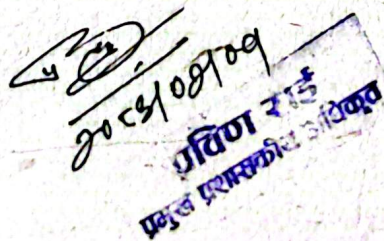 २०८३/०२/०१
प्रविण राई
प्रमुख प्रशासकीय अधिकृत